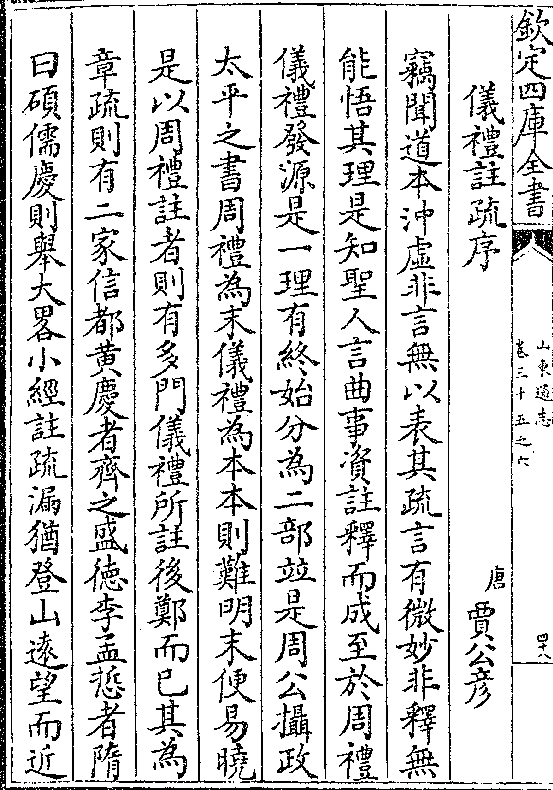 欽定四庫全書
山東通志
卷三十五之六
四十八
儀禮註疏序
唐 賈公彦
竊聞道本沖虛非言無以表其疏言有微妙非釋無
能悟其理是知聖人言曲事資註釋而成至於周禮
儀禮發源是一理有終始分為二部竝是周公攝政
太平之書周禮為末儀禮為本本則難明末便易曉
是以周禮註者則有多門儀禮所註後鄭而已其為
章疏則有二家信都黄慶者齊之盛徳李孟悊者隋
曰碩儒慶則舉大畧小經註疏漏猶登山逺望而近